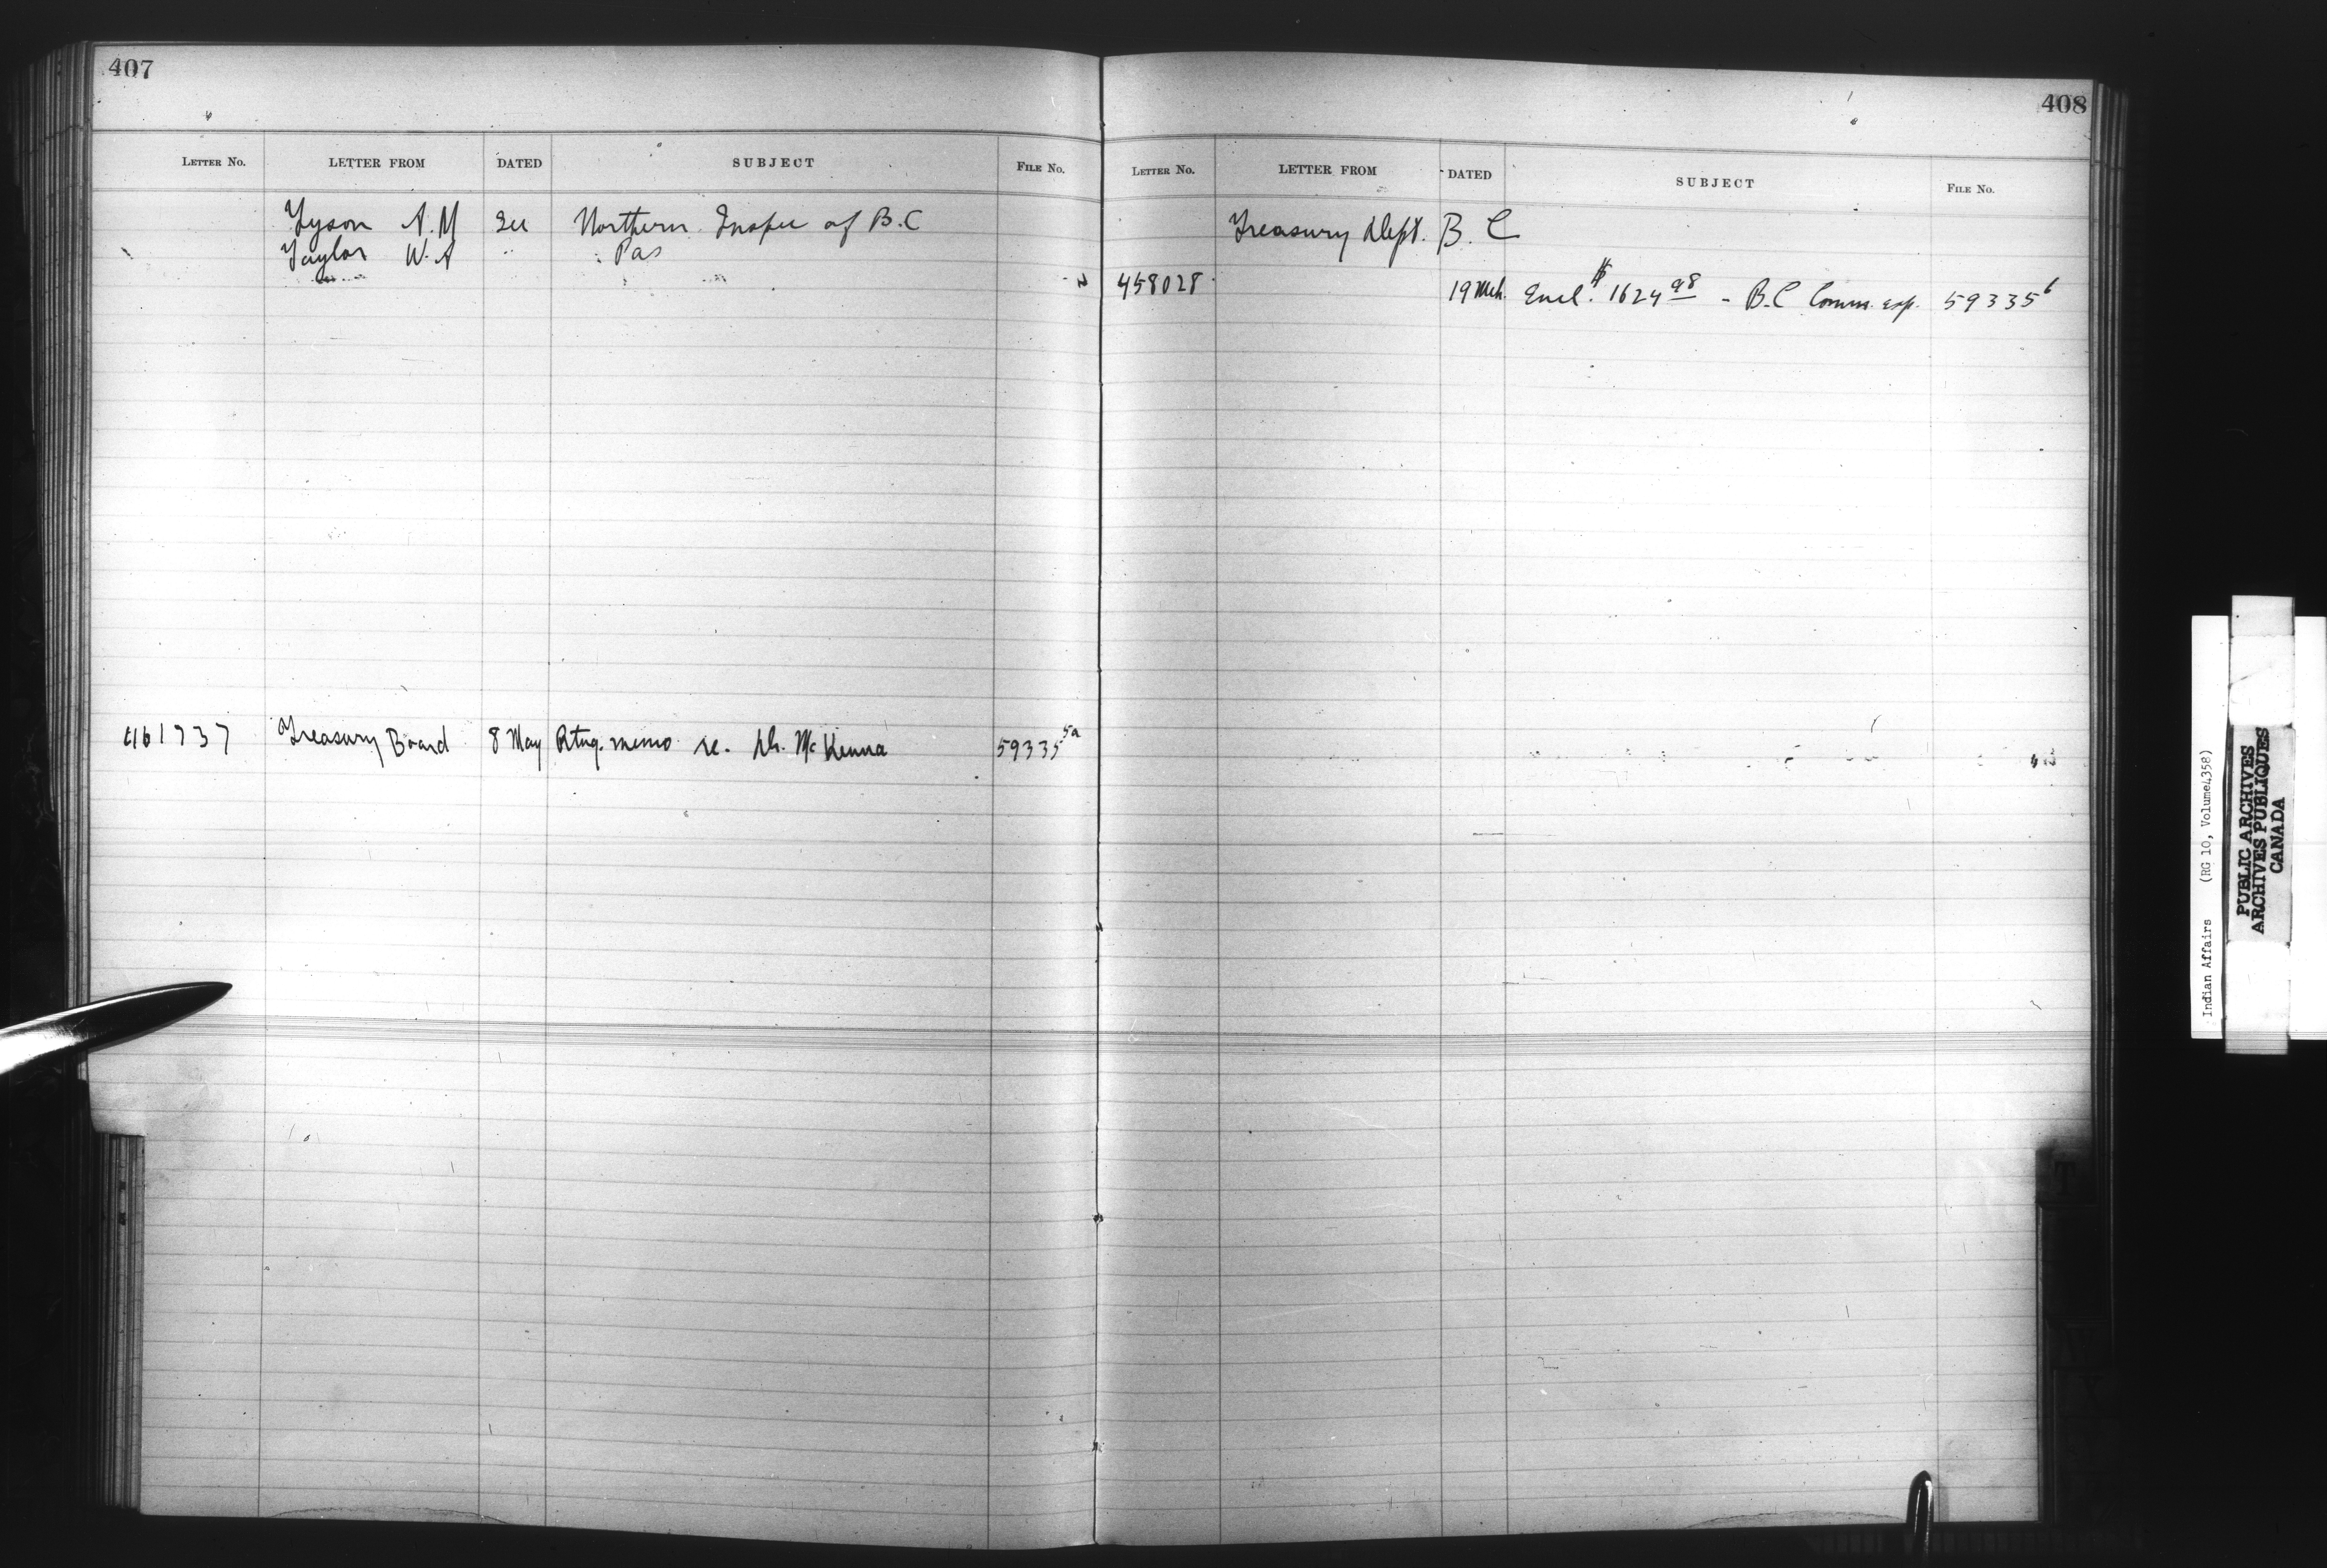 407
LETTER No. LETTER FROM DATED SUBJECT FILE No.
Tyson A. M See Northern Inspec of B.C
Taylor W. A " Pas
461737 Treasury Board 8 May Rtng. memo re. Dr. McKenna 59335 5a
408
LETTER No. LETTER FROM DATED SUBJECT FILE No.
Treasury Dept. B. C
458028 19 Mch. Encl. $1624 98 - B.C Comm. exp. 59335 6
Indian Affairs (RG 10, Volume 4358)
PUBLIC ARCHIVES
ARCHIVES PUBLIQUES
CANADA